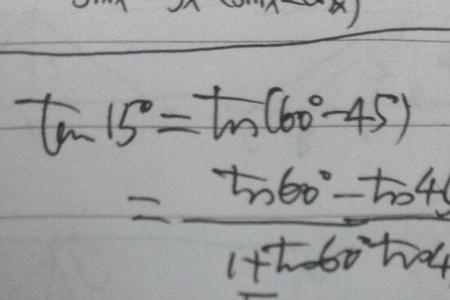 tan 15° = tan(60° - 45°)
= tan60° - tan4
1 + tan60° tan4